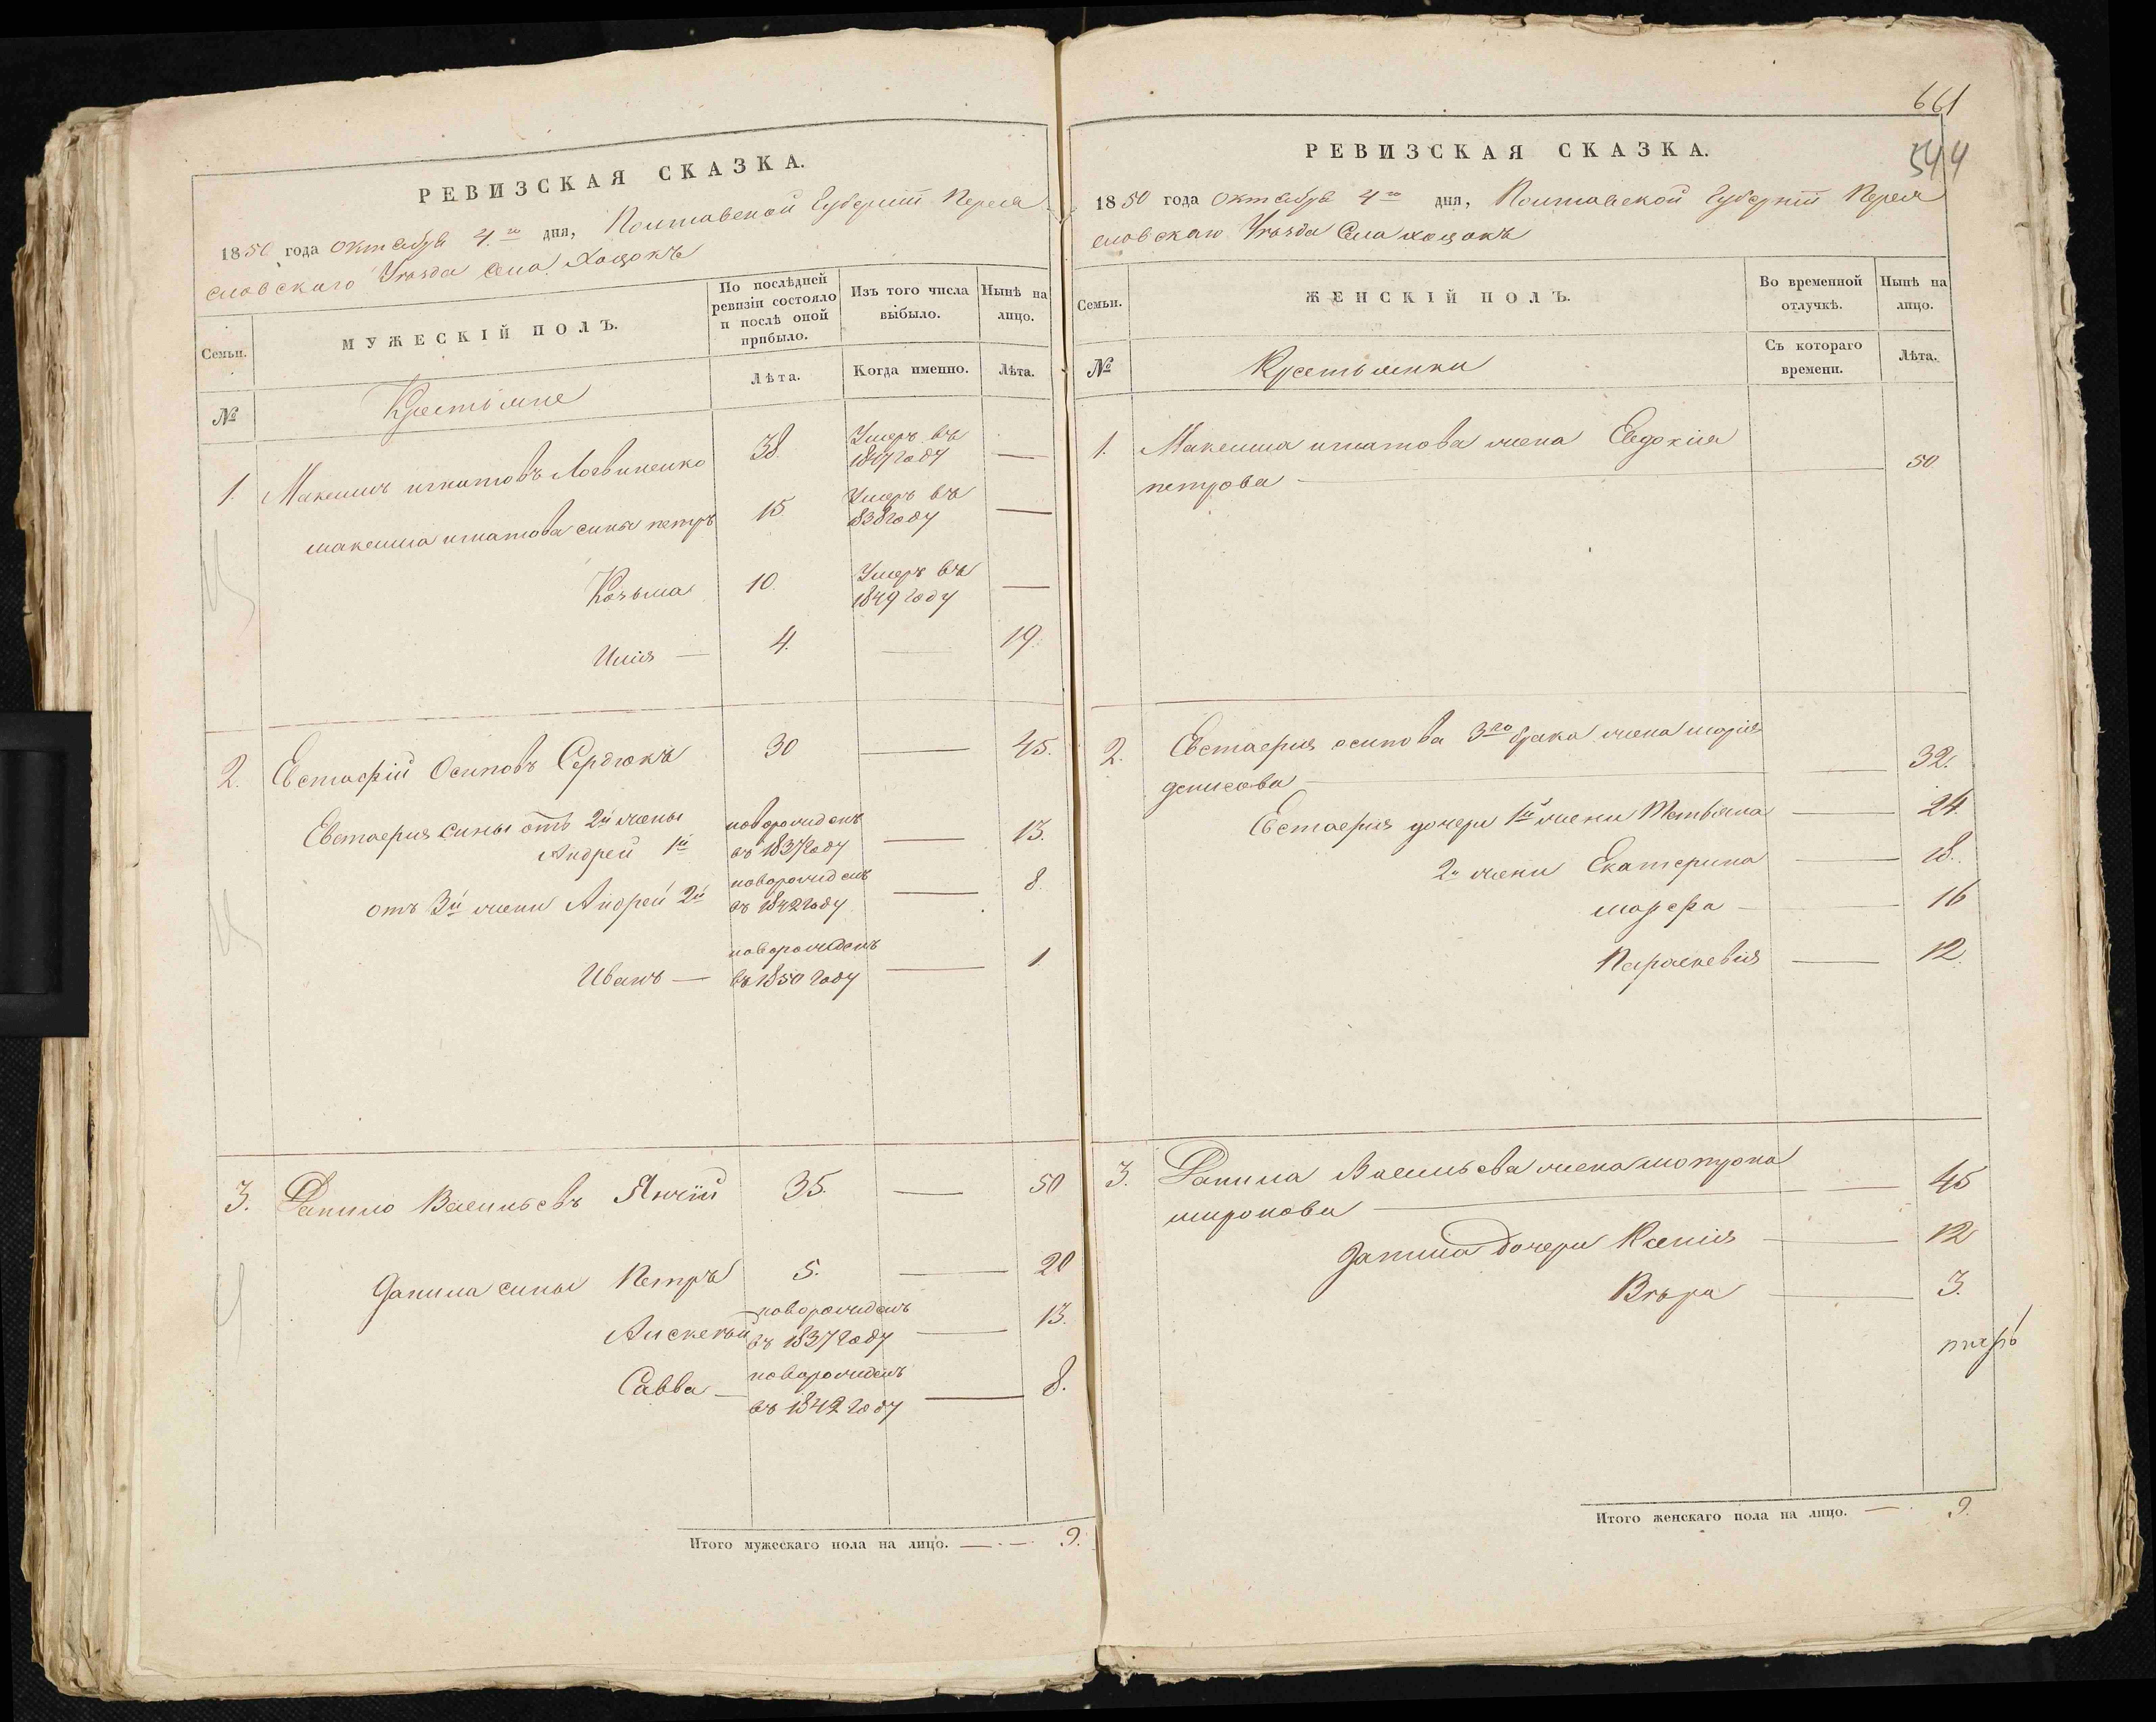 РЕВИЗСКАЯ СКАЗКА.
1850 года октября 4го дня, Полтавской Губерніи Перея
словскаго Уѣзда села Хоцокъ
Семьи.
МУЖЕСКІЙ ПОЛЪ.
По послѣдней ревизіи состояло и послѣ оной прибыло.
Изъ того числа выбыло.
Нынѣ на лицо.
№
Крестьяне
Лѣта.
Когда именно.
Лѣта.
1. Максимъ игнатовъ Логвиненко 38. Умеръ въ 1847 году —
максима игнатова сины петръ 15 Умеръ въ 1838 году —
Козьма 10. Умеръ въ 1849 году —
Илія — 4. — 19.
2. Евстафій Осиповъ Сердюкъ 30 — 45.
Евстафия сины отъ 2й жены
Андрей 1й новорожденъ въ 1837 году — 13.
отъ 3й жени Андрей 2й новорожденъ въ 1842 году — 8.
Иванъ — новорожденъ въ 1850 году — 1
3. Данило Васильевъ 35. — 50
Данила сины Петръ 5. — 20
Алексѣй новорожденъ въ 1837 году — 13.
Савва — новорожденъ въ 1842 году — 8.
Итого мужескаго пола на лицо. — 9.
661
544
РЕВИЗСКАЯ СКАЗКА.
1850 года октября 4го дня, Полтавской Губерніи Перея
словскаго Уѣзда Села хоцокъ
Семьи.
ЖЕНСКІЙ ПОЛЪ.
Во временной отлучкѣ.
Нынѣ на лицо.
№
Крестьянки
Съ котораго времени.
Лѣта.
1. Максима игнатова жена Евдокія
петрова — — 50
2. Евстафия осипова 3го брака жена марія
денисова — — 32.
Евстафия дочери 1й жени Матвѣина — 24.
2й жени Екатерина — 18.
марфа — — 16
Параскевія — 12.
3. Данила Васильева жена мотрона
миронова — — 45
Данила дочери Ксенія — 12
Вѣра — 3.
Итого женскаго пола на лицо. — 9.